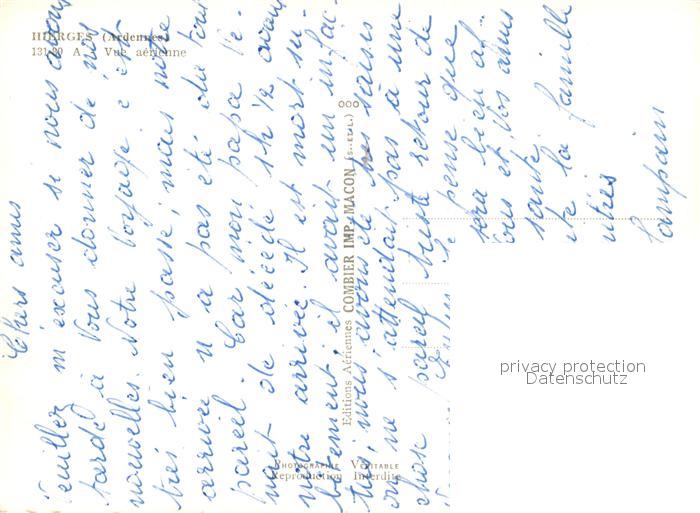 HIERGES (Ardennes)
131-80 A - Vue aérienne
Chers amis
Veuillez m'excuser si nous avons
tardé à vous donner de nos
nouvelles. Notre voyage c'est
très bien passé, mais notre
arrivée n'a pas été du tout
pareil. Car mon papa ve-
nait de décédé 5h 1/2 avant
notre arrivée. Il est mort su-
bitement, il avait un infac-
tus, nous avons été très saisis
on ne s'attendait pas à une
chose pareil triste retour de
je pense que
sera bien
vous et vos amis
santé
de la famille
unies
Campain
Editions Aériennes COMBIER IMP. MACON (S.-et-L.)
PHOTOGRAPHIE VÉRITABLE
Reproduction Interdite
privacy protection
Datenschutz